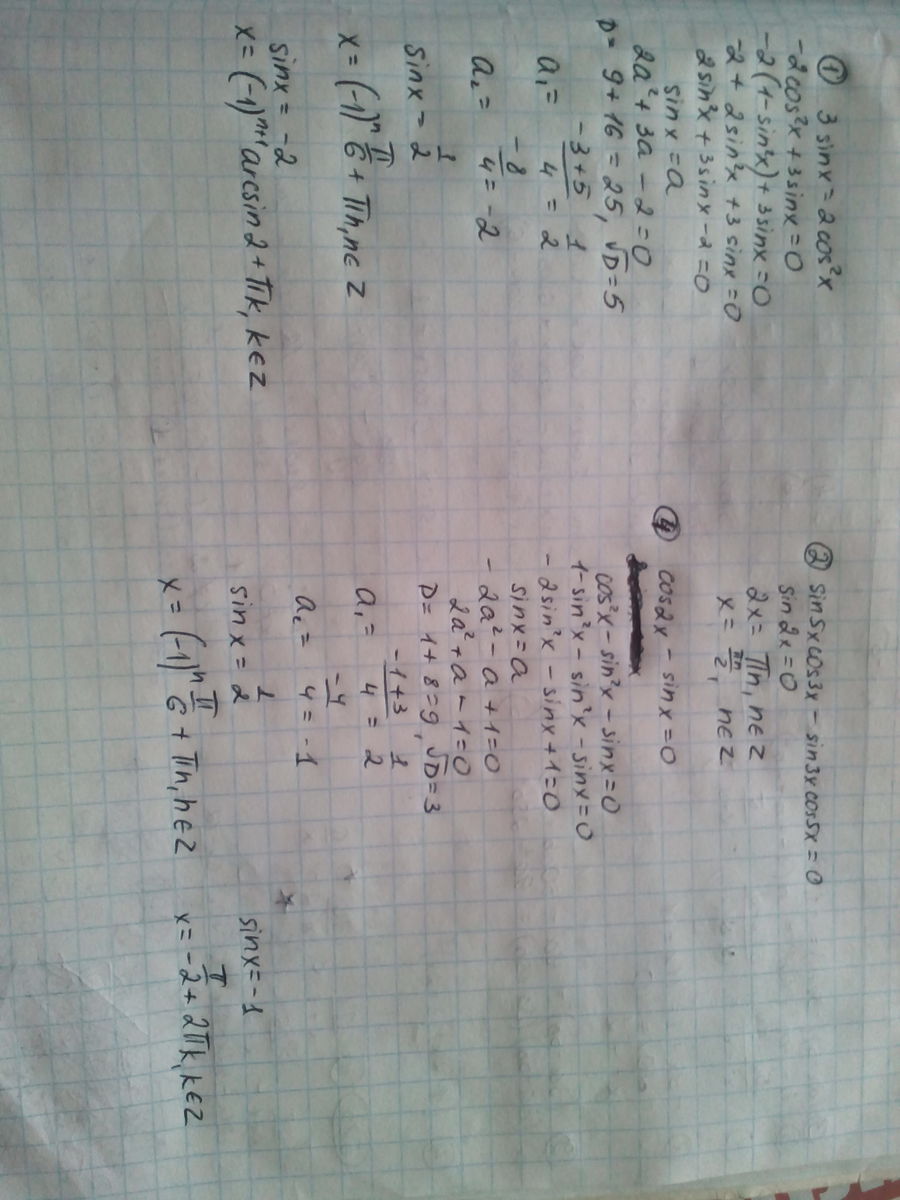 ① 3 sinx = 2 cos²x
-2cos²x + 3 sinx = 0
-2(1-sin²x) + 3 sinx = 0
-2 + 2 sin²x + 3 sinx = 0
2 sin²x + 3 sinx - 2 = 0
sinx = a
2a² + 3a - 2 = 0
D = 9 + 16 = 25, √D = 5
a₁ = (-3+5)/4 = 1/2
a₂ = -8/4 = -2
sinx = 1/2
x = (-1)ⁿ π/6 + πn, n∈Z
sinx = -2
x = (-1)ⁿ⁺¹ arcsin2 + πk, k∈Z
② sin5x cos3x - sin3x cos5x = 0
sin2x = 0
2x = πn, n∈Z
x = πn/2, n∈Z
④ cos2x - sinx = 0
cos²x - sin²x - sinx = 0
1 - sin²x - sin²x - sinx = 0
-2sin²x - sinx + 1 = 0
sinx = a
-2a² - a + 1 = 0
2a² + a - 1 = 0
D = 1 + 8 = 9, √D = 3
a₁ = (-1+3)/4 = 1/2
a₂ = -4/4 = -1
sinx = 1/2
x = (-1)ⁿ π/6 + πn, n∈Z
sinx = -1
x = -π/2 + 2πk, k∈Z